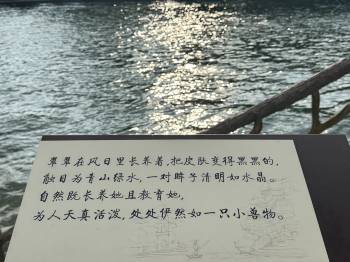 翠翠在风日里长养着,把皮肤变得黑黑的,
触目为青山绿水,一对眸子清明如水晶。
自然既长养她且教育她,
为人天真活泼,处处俨然如一只小兽物。